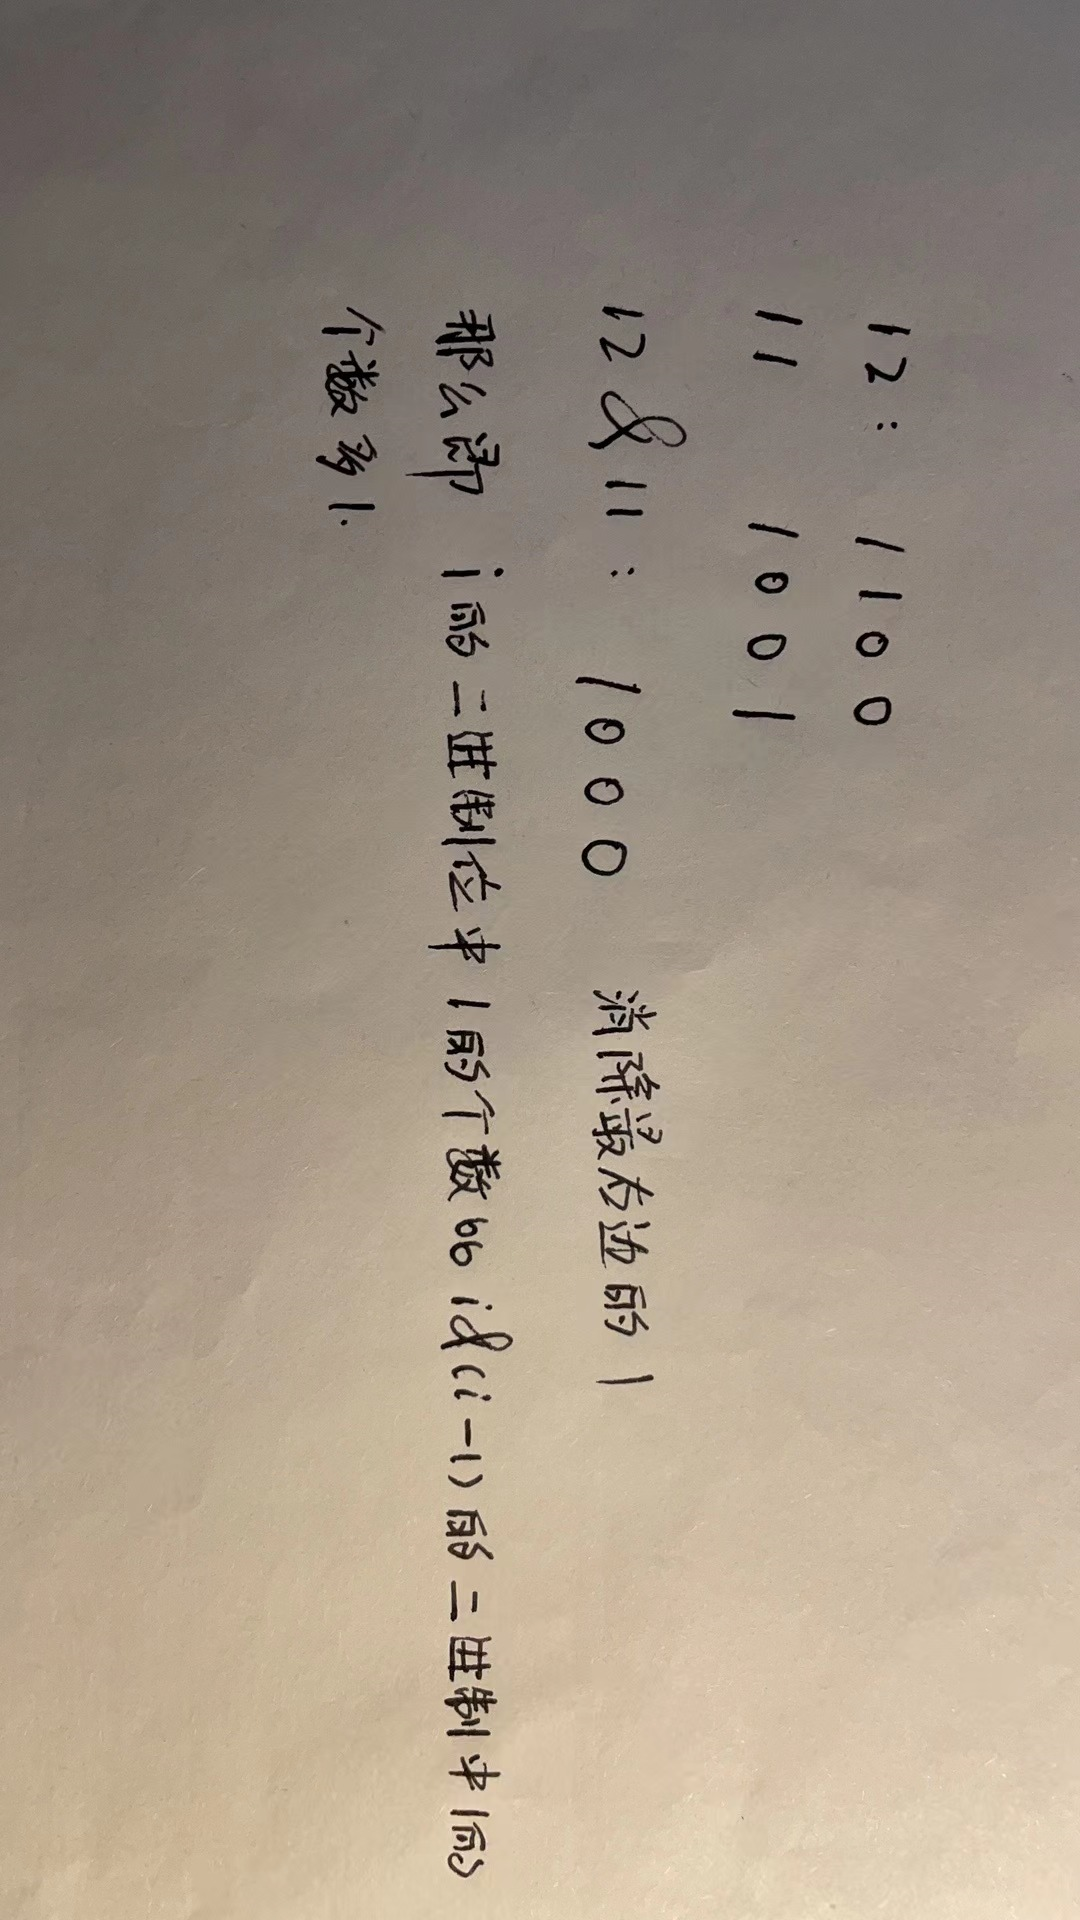 12: 1100
11 1001
12 & 11: 1000 消除最右边的1
那么即 i的二进制位中1的个数比 i&(i-1)的二进制中1的
个数多1.